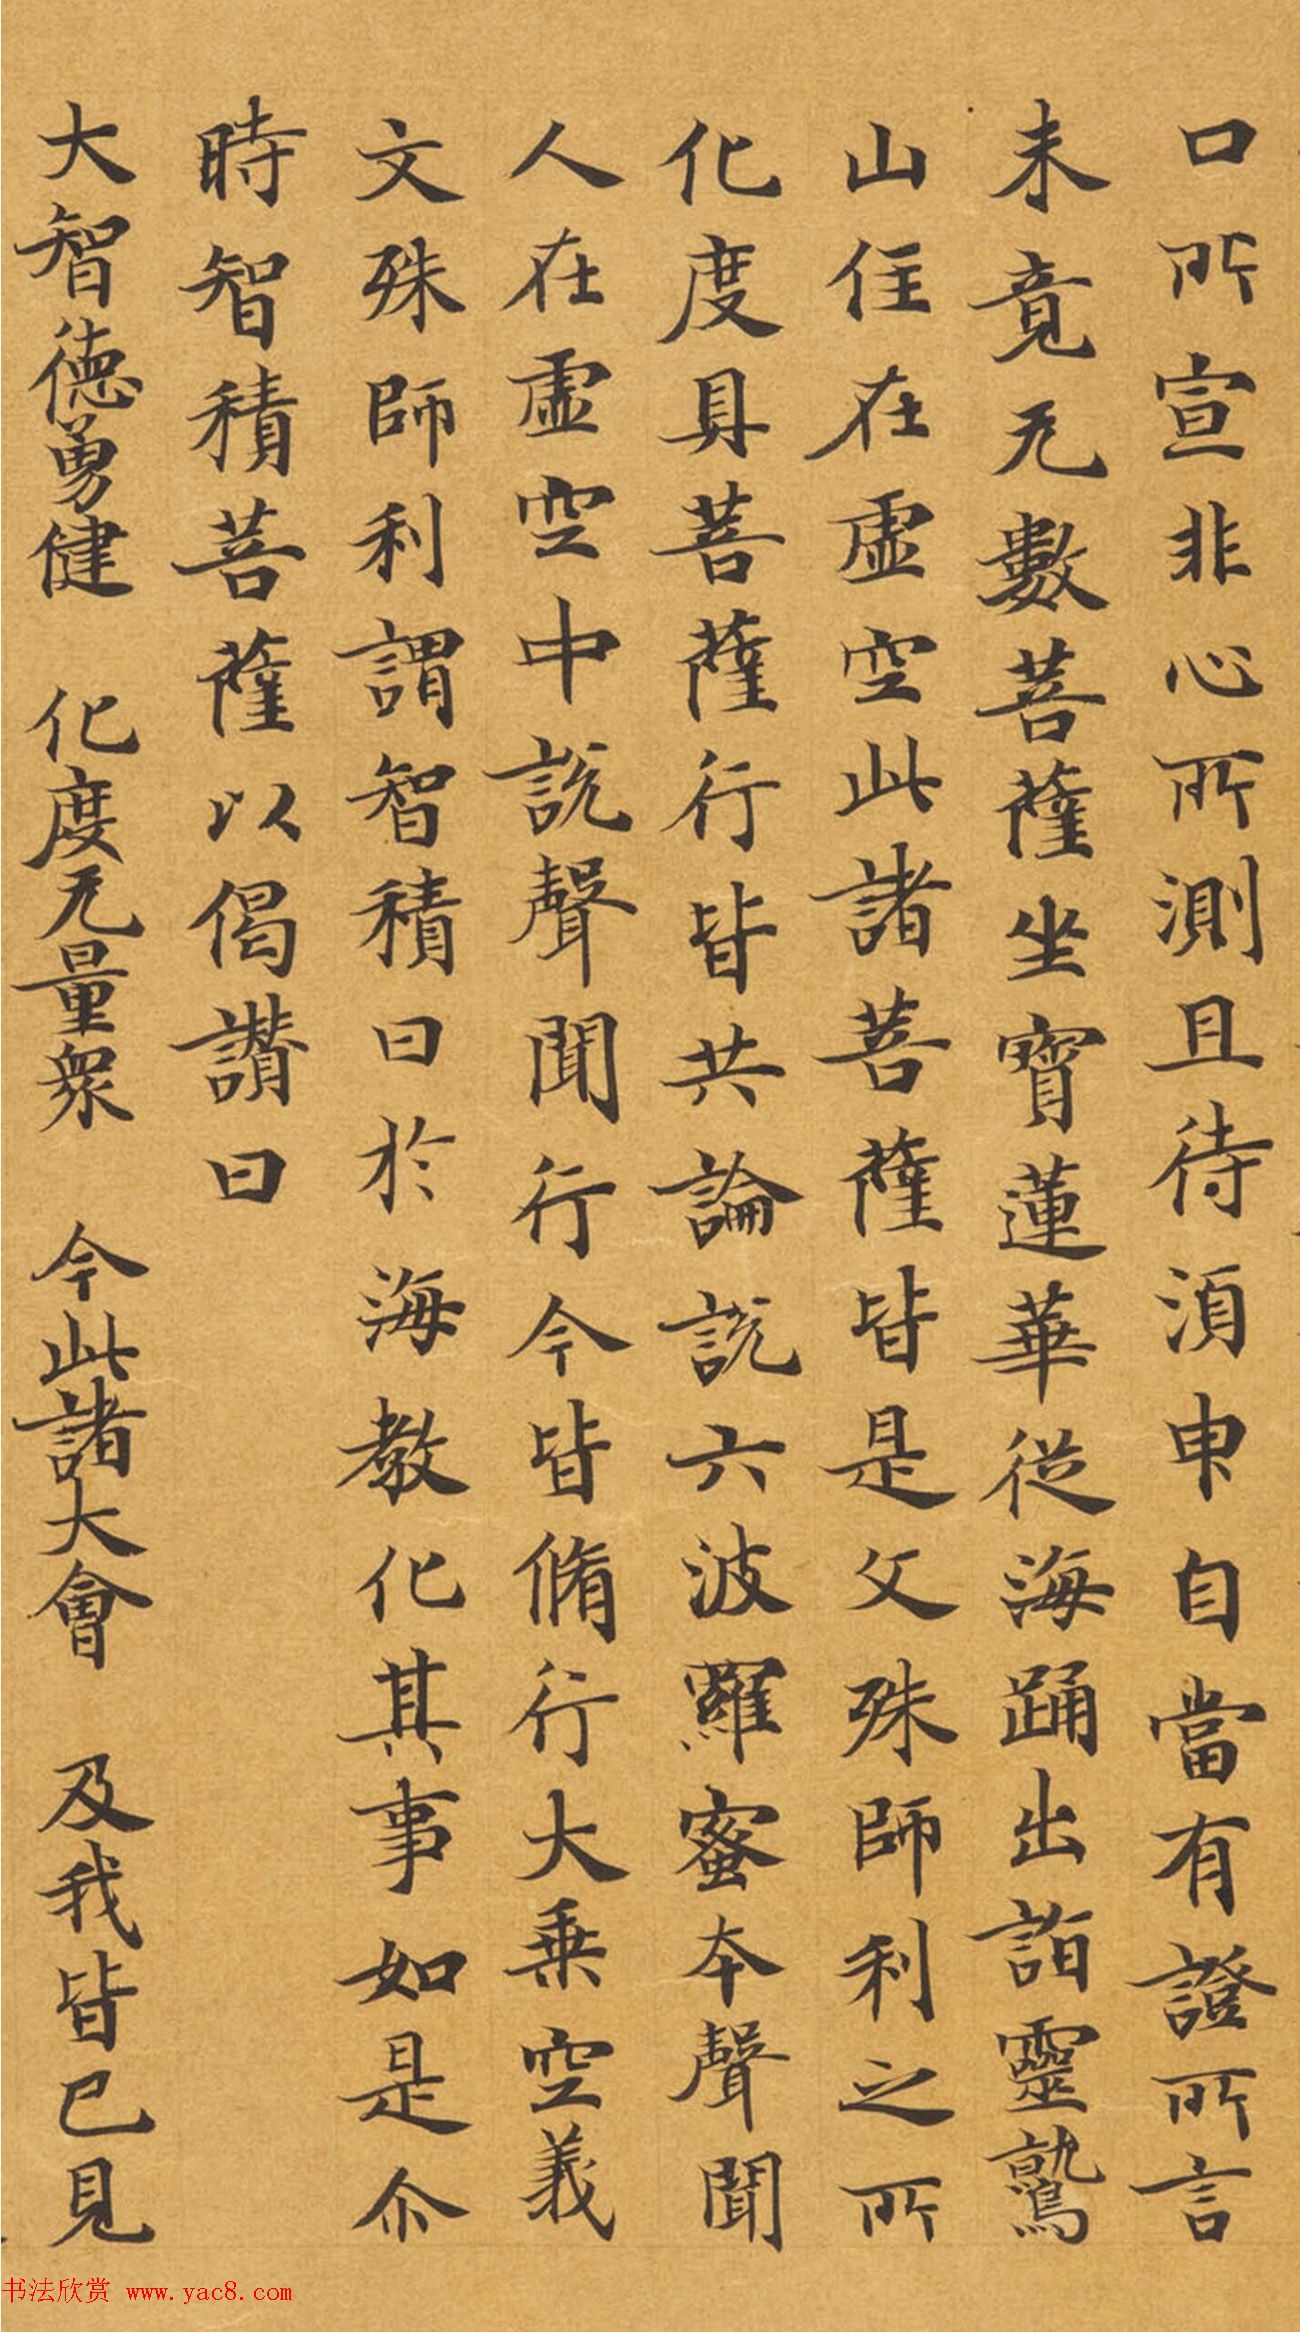 口所宣非心所測且待湏申自當有證所言
未竟无數菩薩坐寳蓮華從海踊出詣靈鷲
山住在虛空此諸菩薩皆是文殊師利之所
化度具菩薩行皆共論説六波羅蜜本聲聞
人在虛空中説聲聞行今皆脩行大乗空義
文殊師利謂智積曰於海教化其事如是尒
時智積菩薩以偈讃曰
大智徳勇健 化度无量衆 今此諸大會 及我皆已見
书法欣赏 www.yac8.com